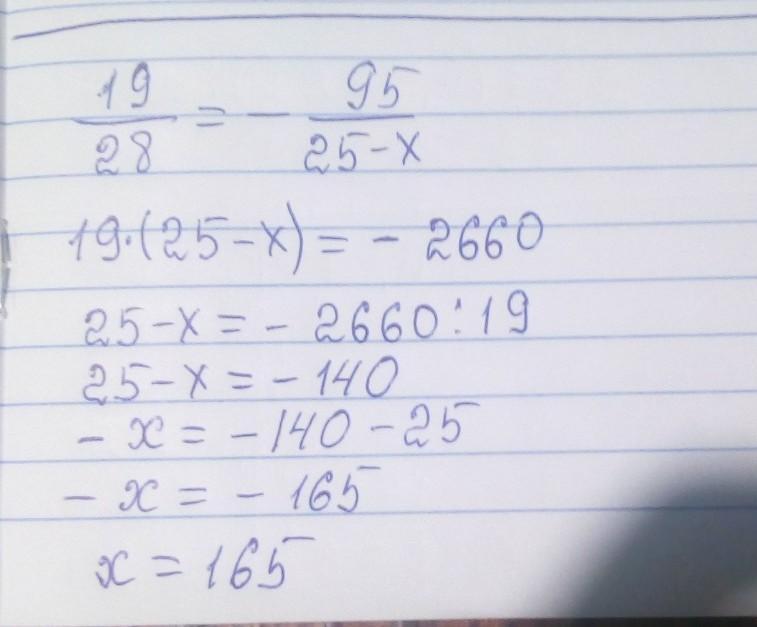 19/28 = - 95/(25-x)
19·(25-x) = - 2660
25-x = - 2660:19
25-x = -140
- x = -140-25
- x = - 165
x = 165